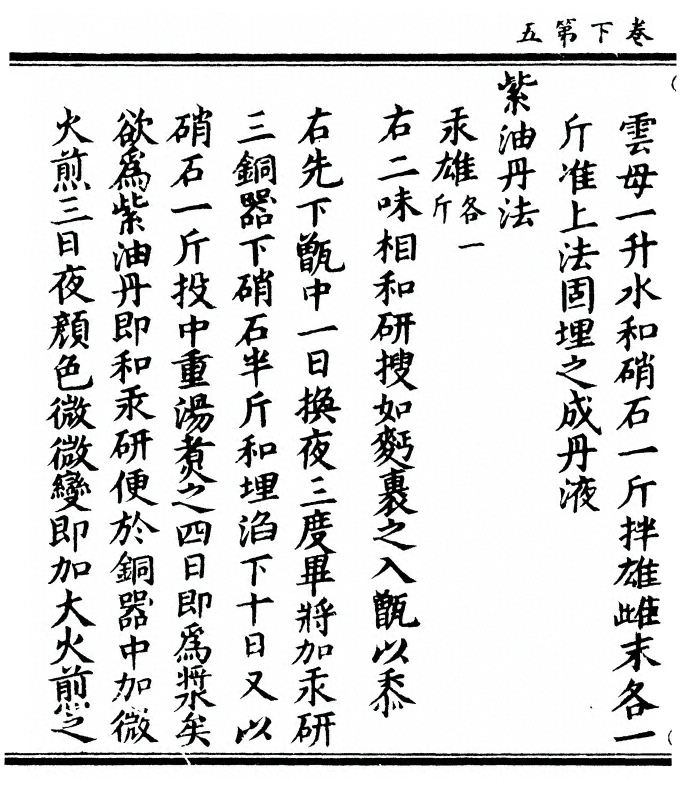 卷下第五
雲母一升水和硝石一斤拌雄雌末各一
斤准上法固埋之成丹液
紫油丹法
汞雄各一斤
右二味相和研搜如麫裹之入甑以黍
右先下甑中一日換夜三度畢將加汞研
三銅器下硝石半斤和埋淊下十日又以
硝石一斤投中重湯煑之四日即爲漿矣
欲爲紫油丹即和汞研便於銅器中加微
火煎三日夜顏色微微變即加大火煎之